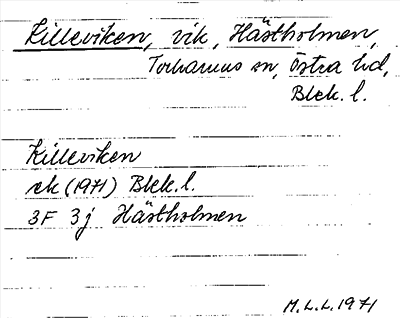 Killeviken, vik, Hästholmen,
Torhamns sn, Östra hd,
Blek. l.
Killeviken
ek (1971) Blek. l.
3F 3j Hästholmen
M.L.L. 1971